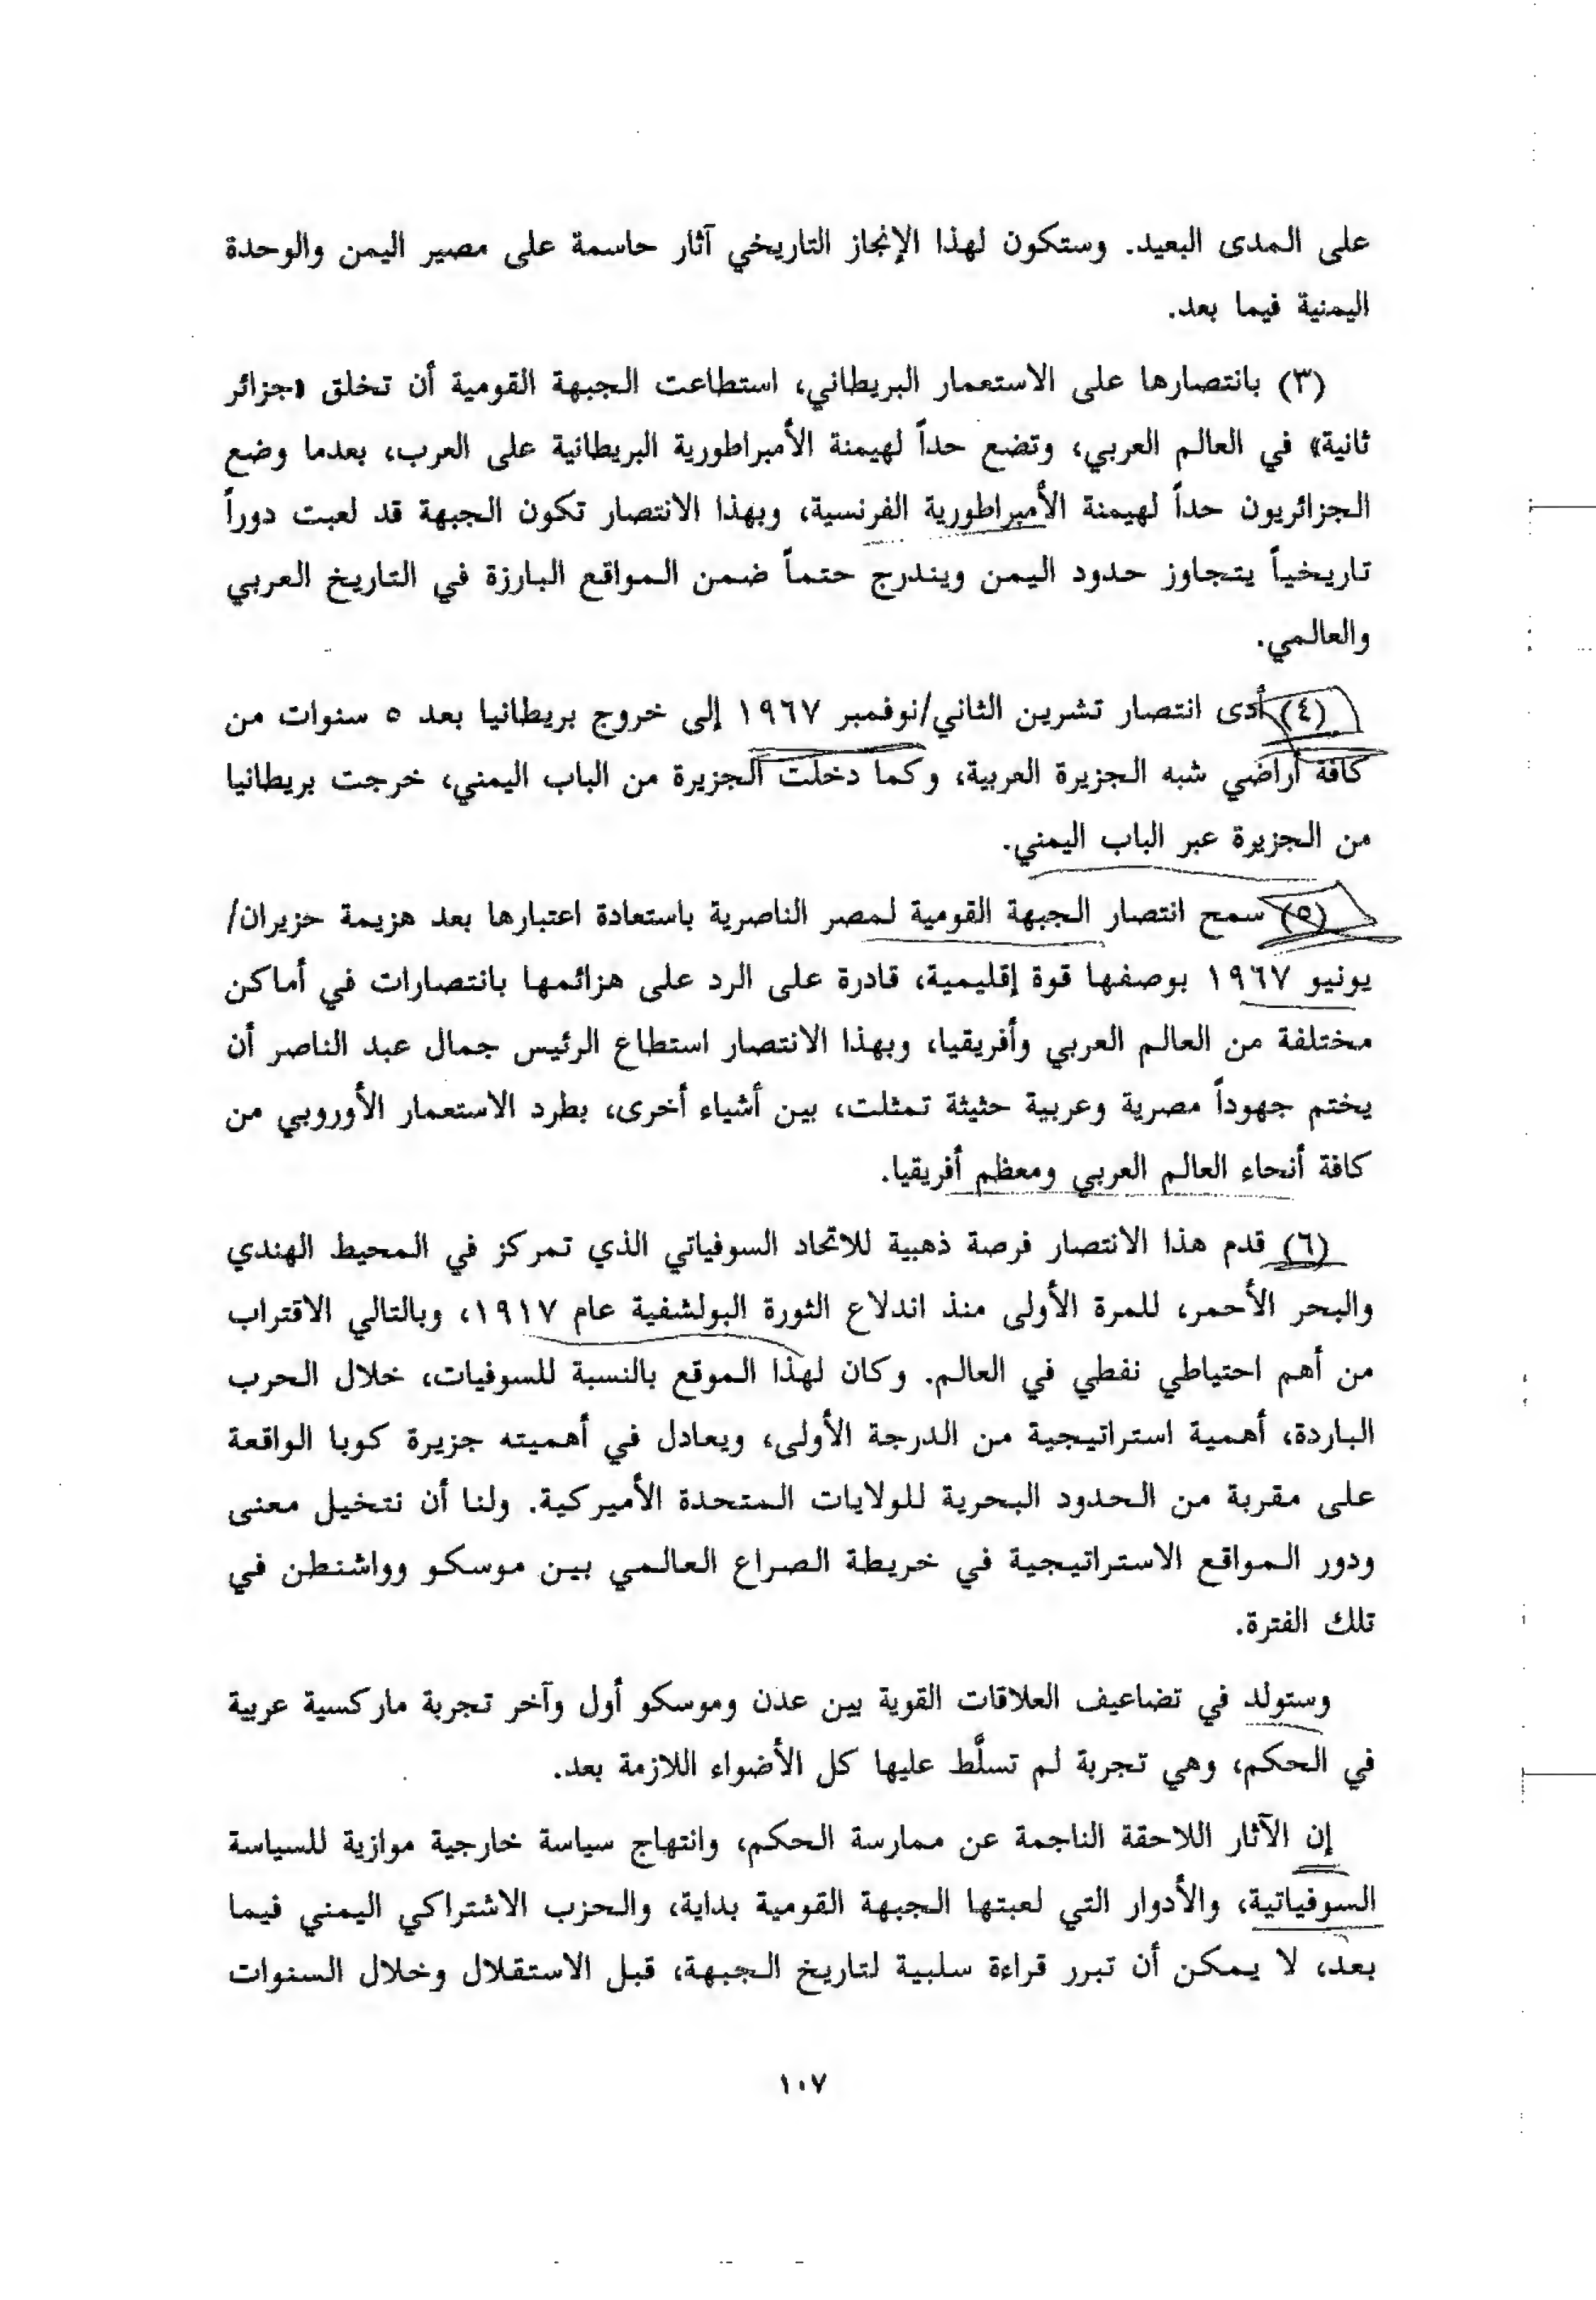 على المدى البعيد. وستكون لهذا الإنجاز التاريخي آثار حاسمة على مصير اليمن والوحدة
اليمنية فيما بعد.
(٣) بانتصارها على الاستعمار البريطاني، استطاعت الجبهة القومية أن تخلق «جزائر
ثانية» في العالم العربي، وتضع حداً لهيمنة الأمبراطورية البريطانية على العرب، بعدما وضع
الجزائريون حداً لهيمنة الأمبراطورية الفرنسية، وبهذا الانتصار تكون الجبهة قد لعبت دوراً
تاريخياً يتجاوز حدود اليمن ويندرج حتماً ضمن المواقع البارزة في التاريخ العربي
والعالمي.
(٤) أدى انتصار تشرين الثاني/نوفمبر ١٩٦٧ إلى خروج بريطانيا بعد ٥ سنوات من
كافة أراضي شبه الجزيرة العربية، وكما دخلت الجزيرة من الباب اليمني، خرجت بريطانيا
من الجزيرة عبر الباب اليمني.
(٥) سمح انتصار الجبهة القومية لمصر الناصرية باستعادة اعتبارها بعد هزيمة حزيران/
يونيو ١٩٦٧ بوصفها قوة إقليمية، قادرة على الرد على هزائمها بانتصارات في أماكن
مختلفة من العالم العربي وأفريقيا، وبهذا الانتصار استطاع الرئيس جمال عبد الناصر أن
يختم جهوداً مصرية وعربية حثيثة تمثلت، بين أشياء أخرى، بطرد الاستعمار الأوروبي من
كافة أنحاء العالم العربي ومعظم أفريقيا.
(٦) قدم هذا الانتصار فرصة ذهبية للاتحاد السوفياتي الذي تمركز في المحيط الهندي
والبحر الأحمر، للمرة الأولى منذ اندلاع الثورة البولشفية عام ١٩١٧، وبالتالي الاقتراب
من أهم احتياطي نفطي في العالم. وكان لهذا الموقع بالنسبة للسوفيات، خلال الحرب
الباردة، أهمية استراتيجية من الدرجة الأولى، ويعادل في أهميته جزيرة كوبا الواقعة
على مقربة من الحدود البحرية للولايات المتحدة الأميركية. ولنا أن نتخيل معنى
ودور المواقع الاستراتيجية في خريطة الصراع العالمي بين موسكو وواشنطن في
تلك الفترة.
وستولد في تضاعيف العلاقات القوية بين عدن وموسكو أول وآخر تجربة ماركسية عربية
في الحكم، وهي تجربة لم تسلَّط عليها كل الأضواء اللازمة بعد.
إن الآثار اللاحقة الناجمة عن ممارسة الحكم، وانتهاج سياسة خارجية موازية للسياسة
السوفياتية، والأدوار التي لعبتها الجبهة القومية بداية، والحزب الاشتراكي اليمني فيما
بعد، لا يمكن أن تبرر قراءة سلبية لتاريخ الجبهة، قبل الاستقلال وخلال السنوات
١٠٧